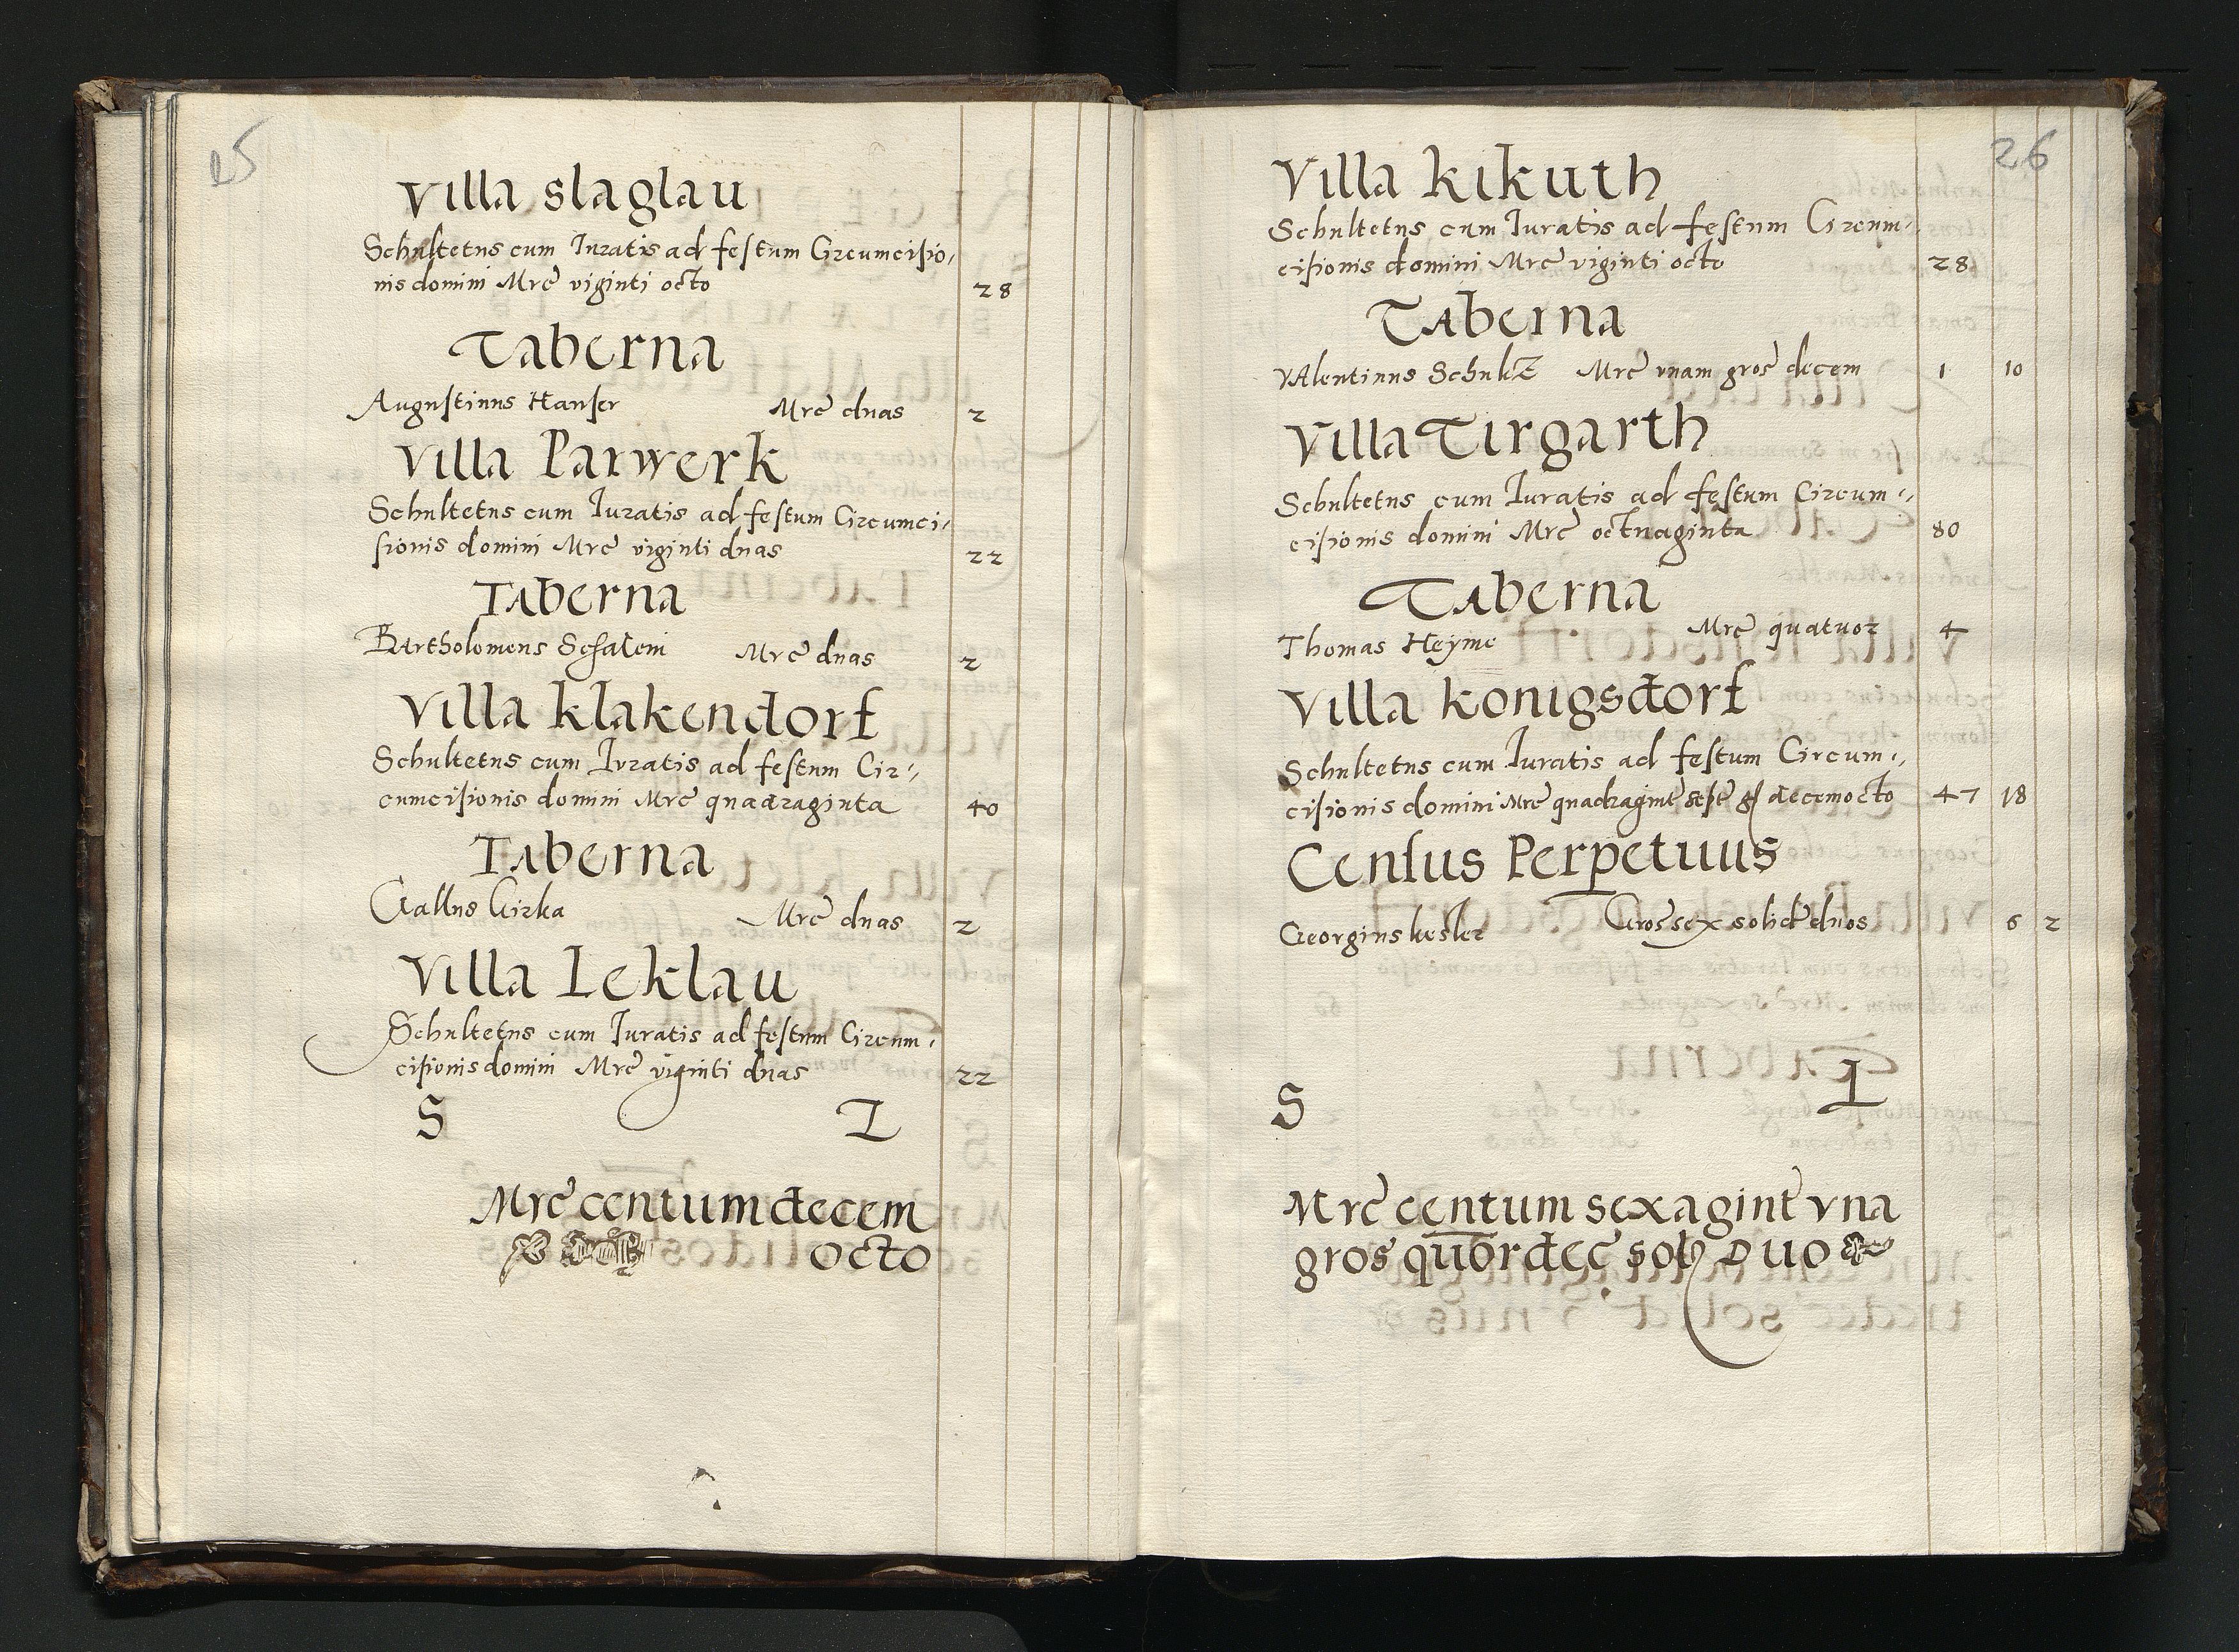 25
Villa slaglau
Schultetus cum Iuratis ad festum Circumcisio,
nis domini Mrc viginti octo 28
Taberna
Augustinus Hanser Mrc duas 2
Villa Parwerk
Schultetus cum Iuratis ad festum Circumci,
sionis domini Mrc viginti duas 22
Taberna
Bartholomeus Mrc duas 2
Villa klakendorf
Schultetus cum Iuratis ad festum Cir,
cumcisionis domini Mrc quadraginta 40
Taberna
Gallus Girka Mrc duas 2
Villa Leklau
Schultetus cum Iuratis ad festum Circum,
cisionis domini Mrc viginti duas 22
S L
Mrc centum decem
octo
26
Villa kikuth
Schultetus cum Iuratis ad festum Circum,
cisionis domini Mrc viginti octo 28
Taberna
Valentinus Schultz Mrc vnam gros decem 1 10
Villa Tirgarth
Schultetus cum Iuratis ad festum Circum,
cisionis domini Mrc octuaginta 80
Taberna
Thomas Heyme Mrc quatuor 4
Villa konigsdorf
Schultetus cum Iuratis ad festum Circum,
cisionis domini Mrc quadragint septe gs decemocto 47 18
Census Perpetuus
Georgius kesler Gros sex solid duos 6 2
S L
Mrc centum sexagint vna
gros quordec sol Duo